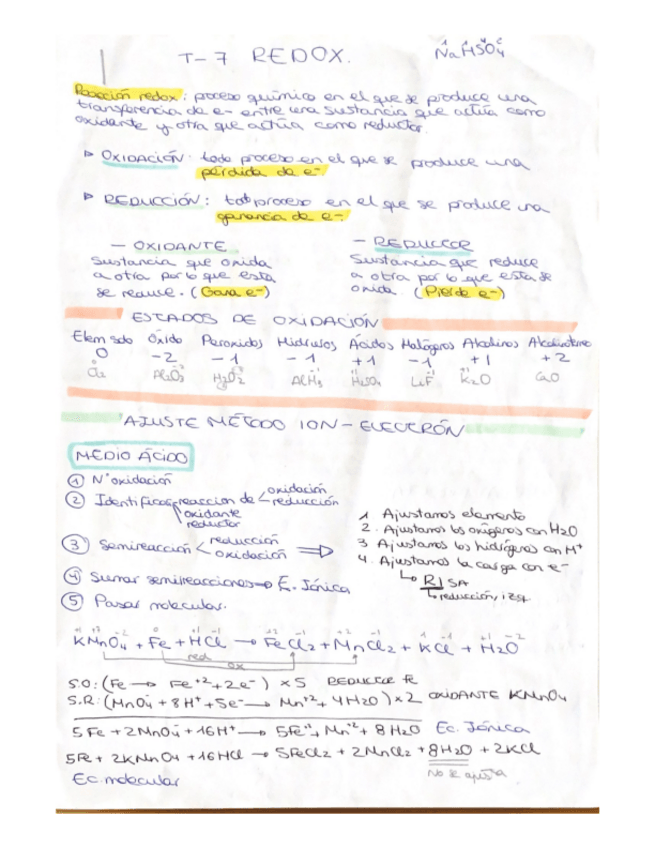 T-7 REDOX.
NaHSO4
Reacción redox: proceso químico en el que se produce una
transferencia de e- entre una sustancia que actúa como
oxidante y otra que actúa como reductor.
▷ OXIDACIÓN: todo proceso en el que se produce una
pérdida de e-
▷ REDUCCIÓN: todo proceso en el que se produce una
ganancia de e-.
- OXIDANTE
Sustancia que oxida
a otra por lo que esta
se reduce. (Gana e-)
- REDUCTOR
Sustancia que reduce
a otra por lo que esta se
oxida (Pierde e-)
ESTADOS DE OXIDACIÓN
Elem solo Óxido Peróxidos Hidruros Ácidos Halógeros Alcalinos Alcalinotérreo
0 -2 -1 -1 +1 -1 +1 +2
Al2O3 H2O2 AlH3 LiF K2O CaO
AJUSTE MÉTODO ION-ELECTRÓN
MEDIO ÁCIDO
① Nº oxidación
② Identificar reaccion de oxidación
reducción
oxidante
reductor
③ Semireacción reducción
oxidación ⇒
1 Ajustamos elemento
2. Ajustamos los oxígenos con H2O
3 Ajustamos los hidrógenos con H+
4. Ajustamos la carga con e-
RISA
reducción, izq
④ Sumar semireacciones → E. Iónica
⑤ Pasar molecular.
+1 +7 -2 0 +1 -1 +2 -1 +2 -1 1 -1 +1 -2
KMnO4 + Fe + HCl → FeCl2 + MnCl2 + KCl + H2O
red
ox
S.O: (Fe → Fe+2 + 2e-) x5 REDUCTOR Fe
S.R: (MnO4- + 8H+ + 5e- → Mn+2 + 4H2O) x2 OXIDANTE KMnO4
5Fe + 2MnO4- + 16H+ → 5Fe+2 + Mn+2 + 8H2O Ec. Iónica
5Fe + 2KMnO4 + 16HCl → 5FeCl2 + 2MnCl2 + 8H2O + 2KCl
No se ajusta
Ec. molecular